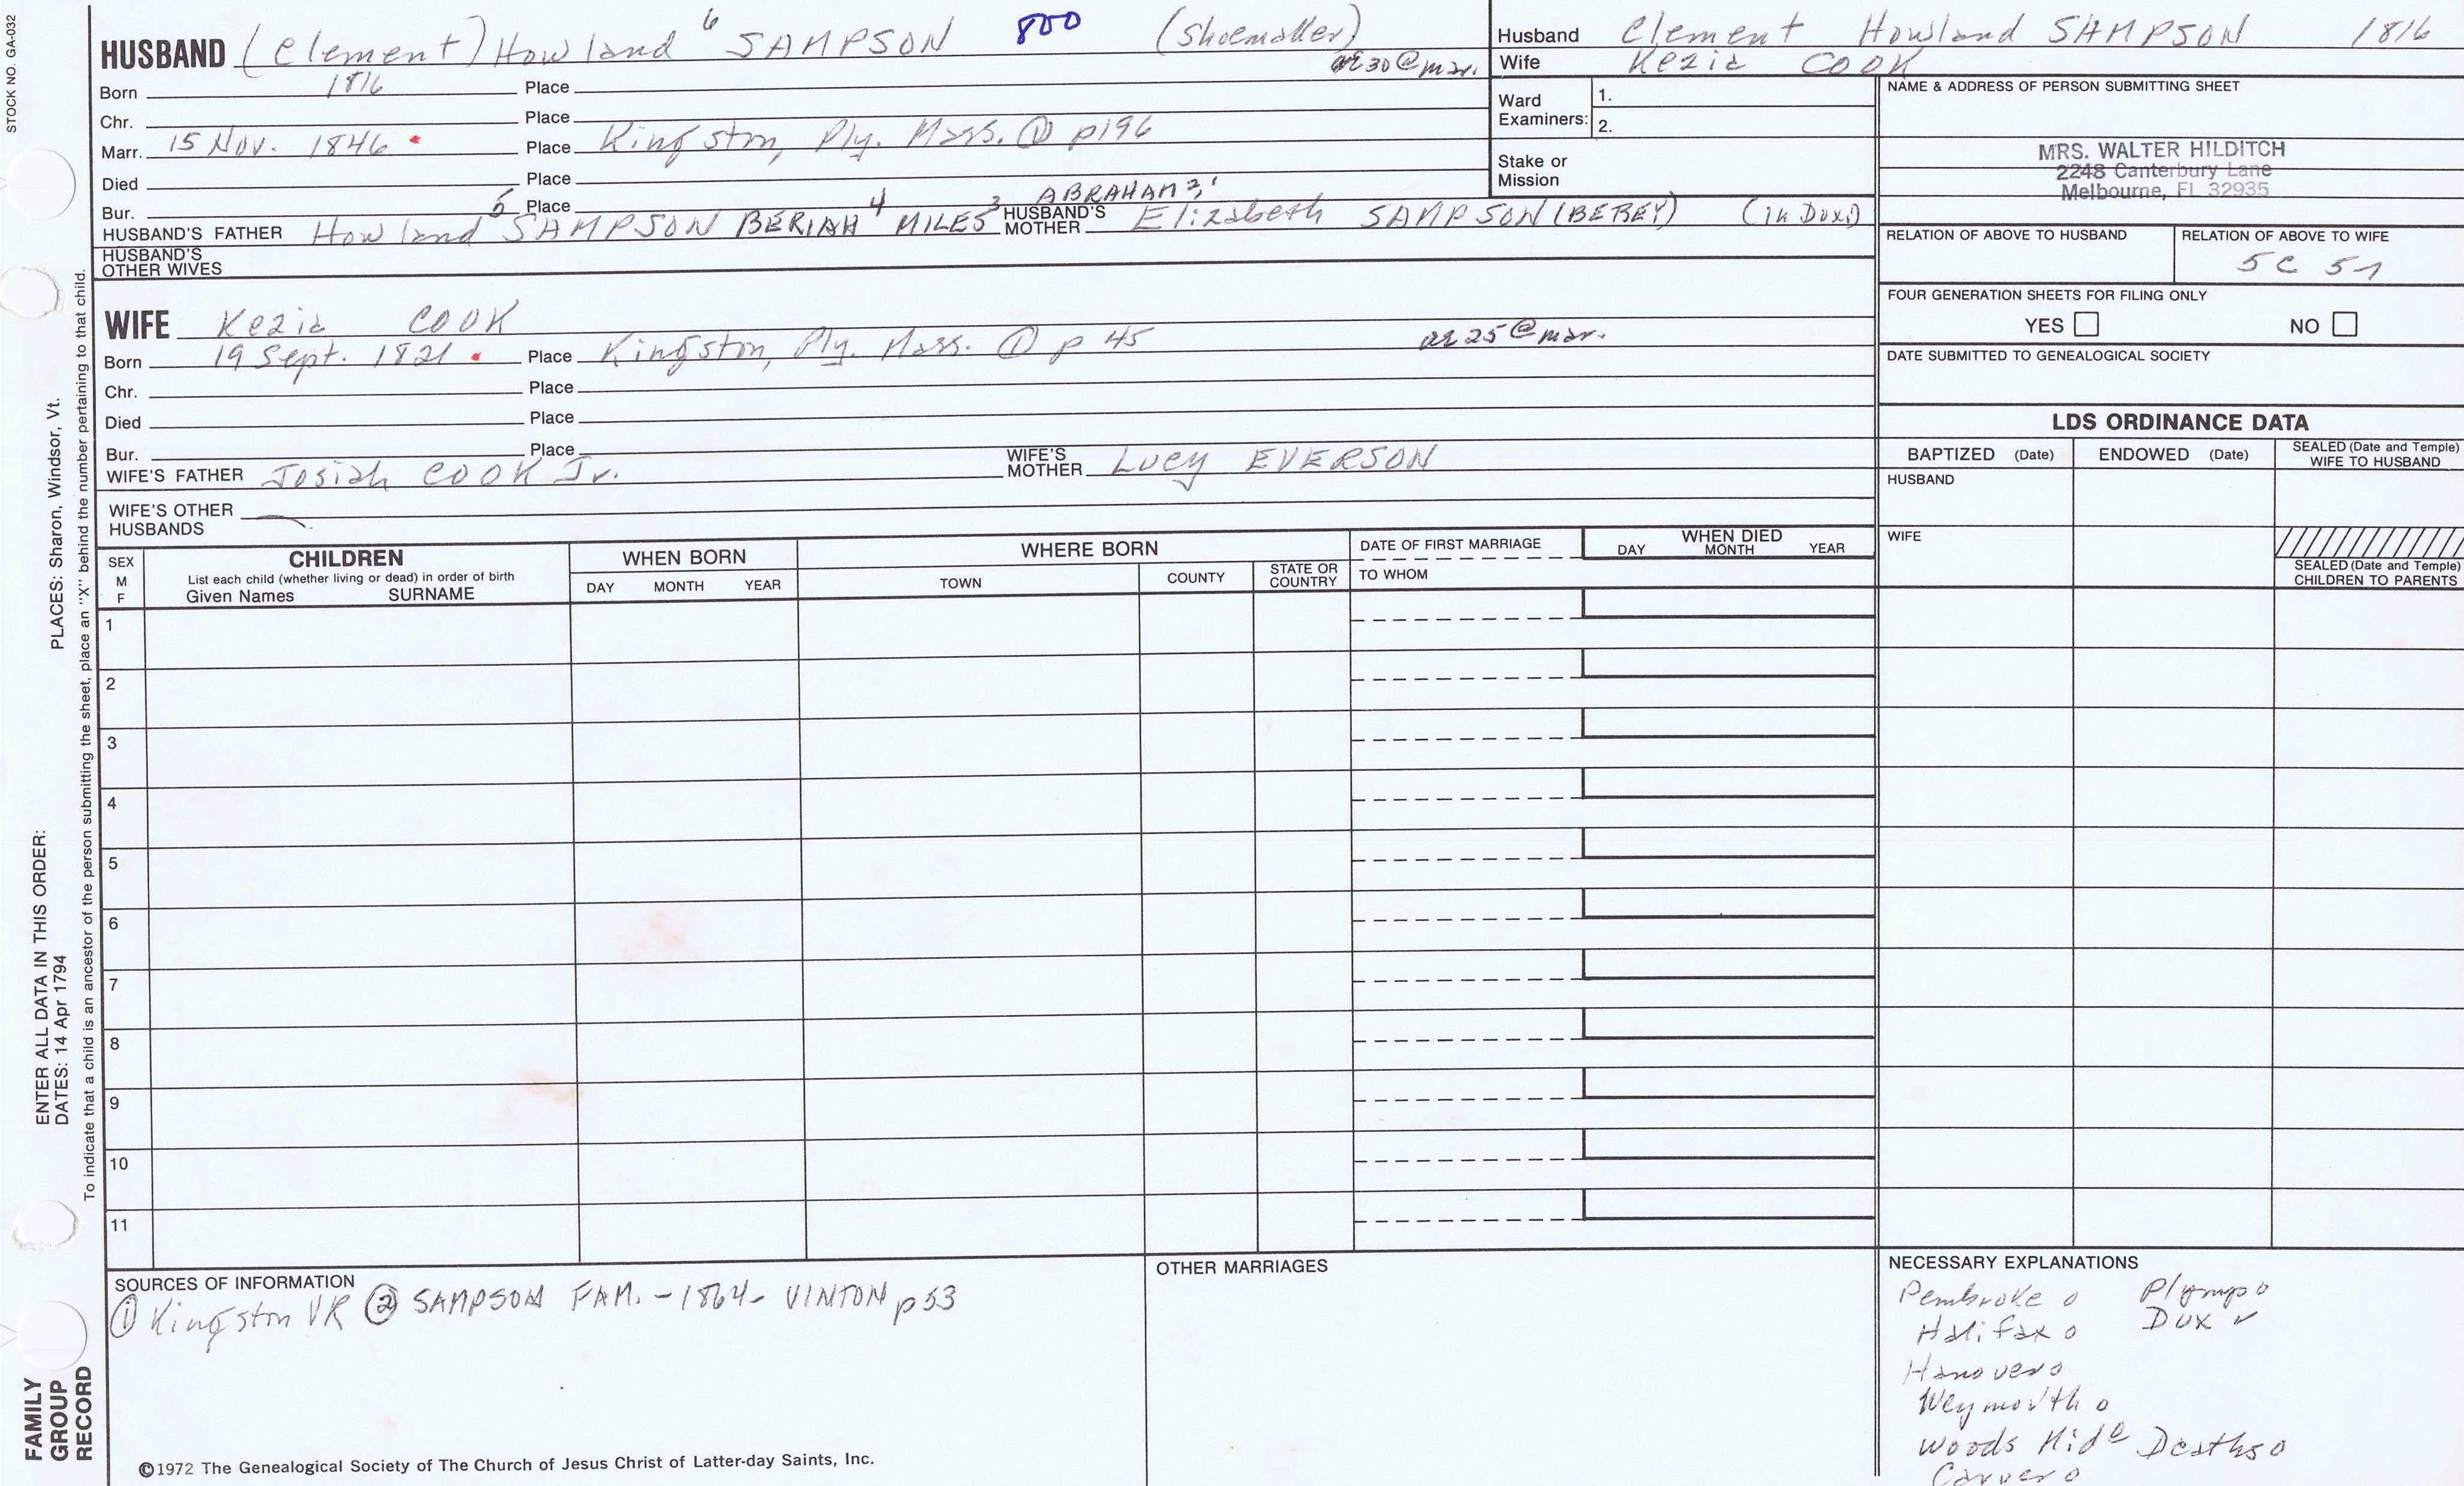 STOCK NO. GA-032
HUSBAND (Clement) Howland 6 SAMPSON 800 (Shoemaker)
ae 30 @ mar.
Born 1816 Place
Chr. Place
Marr. 15 Nov. 1846 Place Kingston, Ply. Mass. ① p196
Died Place
Bur. Place
HUSBAND'S FATHER Howland 5 SAMPSON BERIAH 4 MILES 3 ABRAHAM 2, 1 HUSBAND'S MOTHER Elizabeth SAMPSON (BEREY) (in Dux.)
HUSBAND'S OTHER WIVES
WIFE Kezia COOK
Born 19 Sept. 1821 Place Kingston, Ply. Mass. ① p 45 ae 25 @ mar.
Chr. Place
Died Place
Bur. Place
WIFE'S FATHER Josiah COOK Jr. WIFE'S MOTHER Lucy EVERSON
WIFE'S OTHER HUSBANDS
Husband Clement Howland SAMPSON 1816
Wife Kezia COOK
Ward Examiners: 1.
2.
Stake or Mission
NAME & ADDRESS OF PERSON SUBMITTING SHEET
MRS. WALTER HILDITCH
2248 Canterbury Lane
Melbourne, FL 32935
RELATION OF ABOVE TO HUSBAND RELATION OF ABOVE TO WIFE
5C 5
FOUR GENERATION SHEETS FOR FILING ONLY
YES NO
DATE SUBMITTED TO GENEALOGICAL SOCIETY
LDS ORDINANCE DATA
BAPTIZED (Date) ENDOWED (Date) SEALED (Date and Temple) WIFE TO HUSBAND
HUSBAND
WIFE
SEALED (Date and Temple) CHILDREN TO PARENTS
SEX M F CHILDREN List each child (whether living or dead) in order of birth Given Names SURNAME
WHEN BORN DAY MONTH YEAR
WHERE BORN TOWN COUNTY STATE OR COUNTRY
DATE OF FIRST MARRIAGE TO WHOM
WHEN DIED DAY MONTH YEAR
1
2
3
4
5
6
7
8
9
10
11
SOURCES OF INFORMATION
① Kingston VR ② SAMPSON FAM. - 1864 - VINTON p 53
OTHER MARRIAGES
NECESSARY EXPLANATIONS
Pembroke o Plymp o
Halifax o Dux ✓
Hanover o
Weymouth o
Woods Mid o Deaths o
Carver o
©1972 The Genealogical Society of The Church of Jesus Christ of Latter-day Saints, Inc.
ENTER ALL DATA IN THIS ORDER: PLACES: Sharon, Windsor, Vt.
DATES: 14 Apr 1794
To indicate that a child is an ancestor of the person submitting the sheet, place an "X" behind the number pertaining to that child.
FAMILY GROUP RECORD